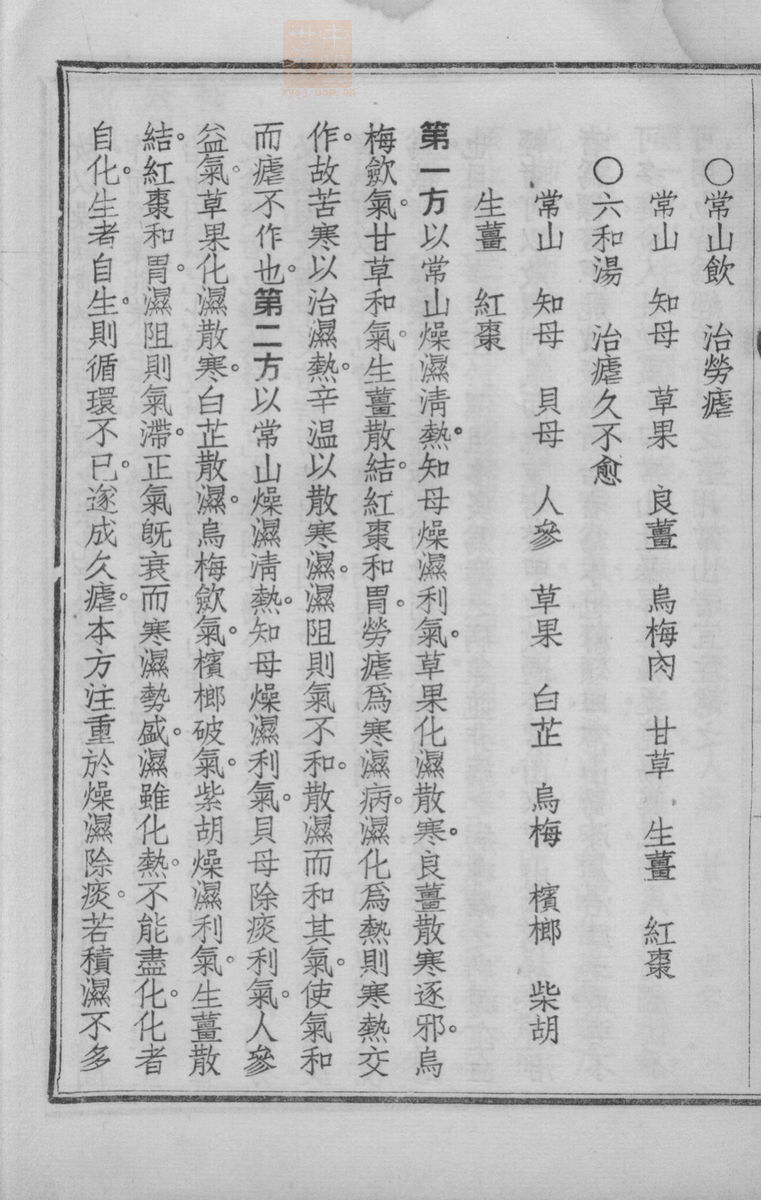 ○常山飲　治勞瘧
常山　知母　草果　良薑　烏梅肉　甘草　生薑　紅棗
○六和湯　治瘧久不愈
常山　知母　貝母　人參　草果　白芷　烏梅　檳榔　柴胡
生薑　紅棗
第一方以常山燥濕淸熱。知母燥濕利氣。草果化濕散寒。良薑散寒逐邪。烏
梅歛氣。甘草和氣。生薑散結。紅棗和胃。勞瘧爲寒濕病。濕化爲熱則寒熱交
作。故苦寒以治濕熱。辛温以散寒濕。濕阻則氣不和。散濕而和其氣。使氣和
而瘧不作也。第二方以常山燥濕淸熱。知母燥濕利氣。貝母除痰利氣。人參
益氣。草果化濕散寒。白芷散濕。烏梅歛氣。檳榔破氣。紫胡燥濕利氣。生薑散
結。紅棗和胃。濕阻則氣滯。正氣旣衰而寒濕勢盛。濕雖化熱。不能盡化。化者
自化。生者自生。則循環不已。遂成久瘧。本方注重於燥濕除痰。若積濕不多